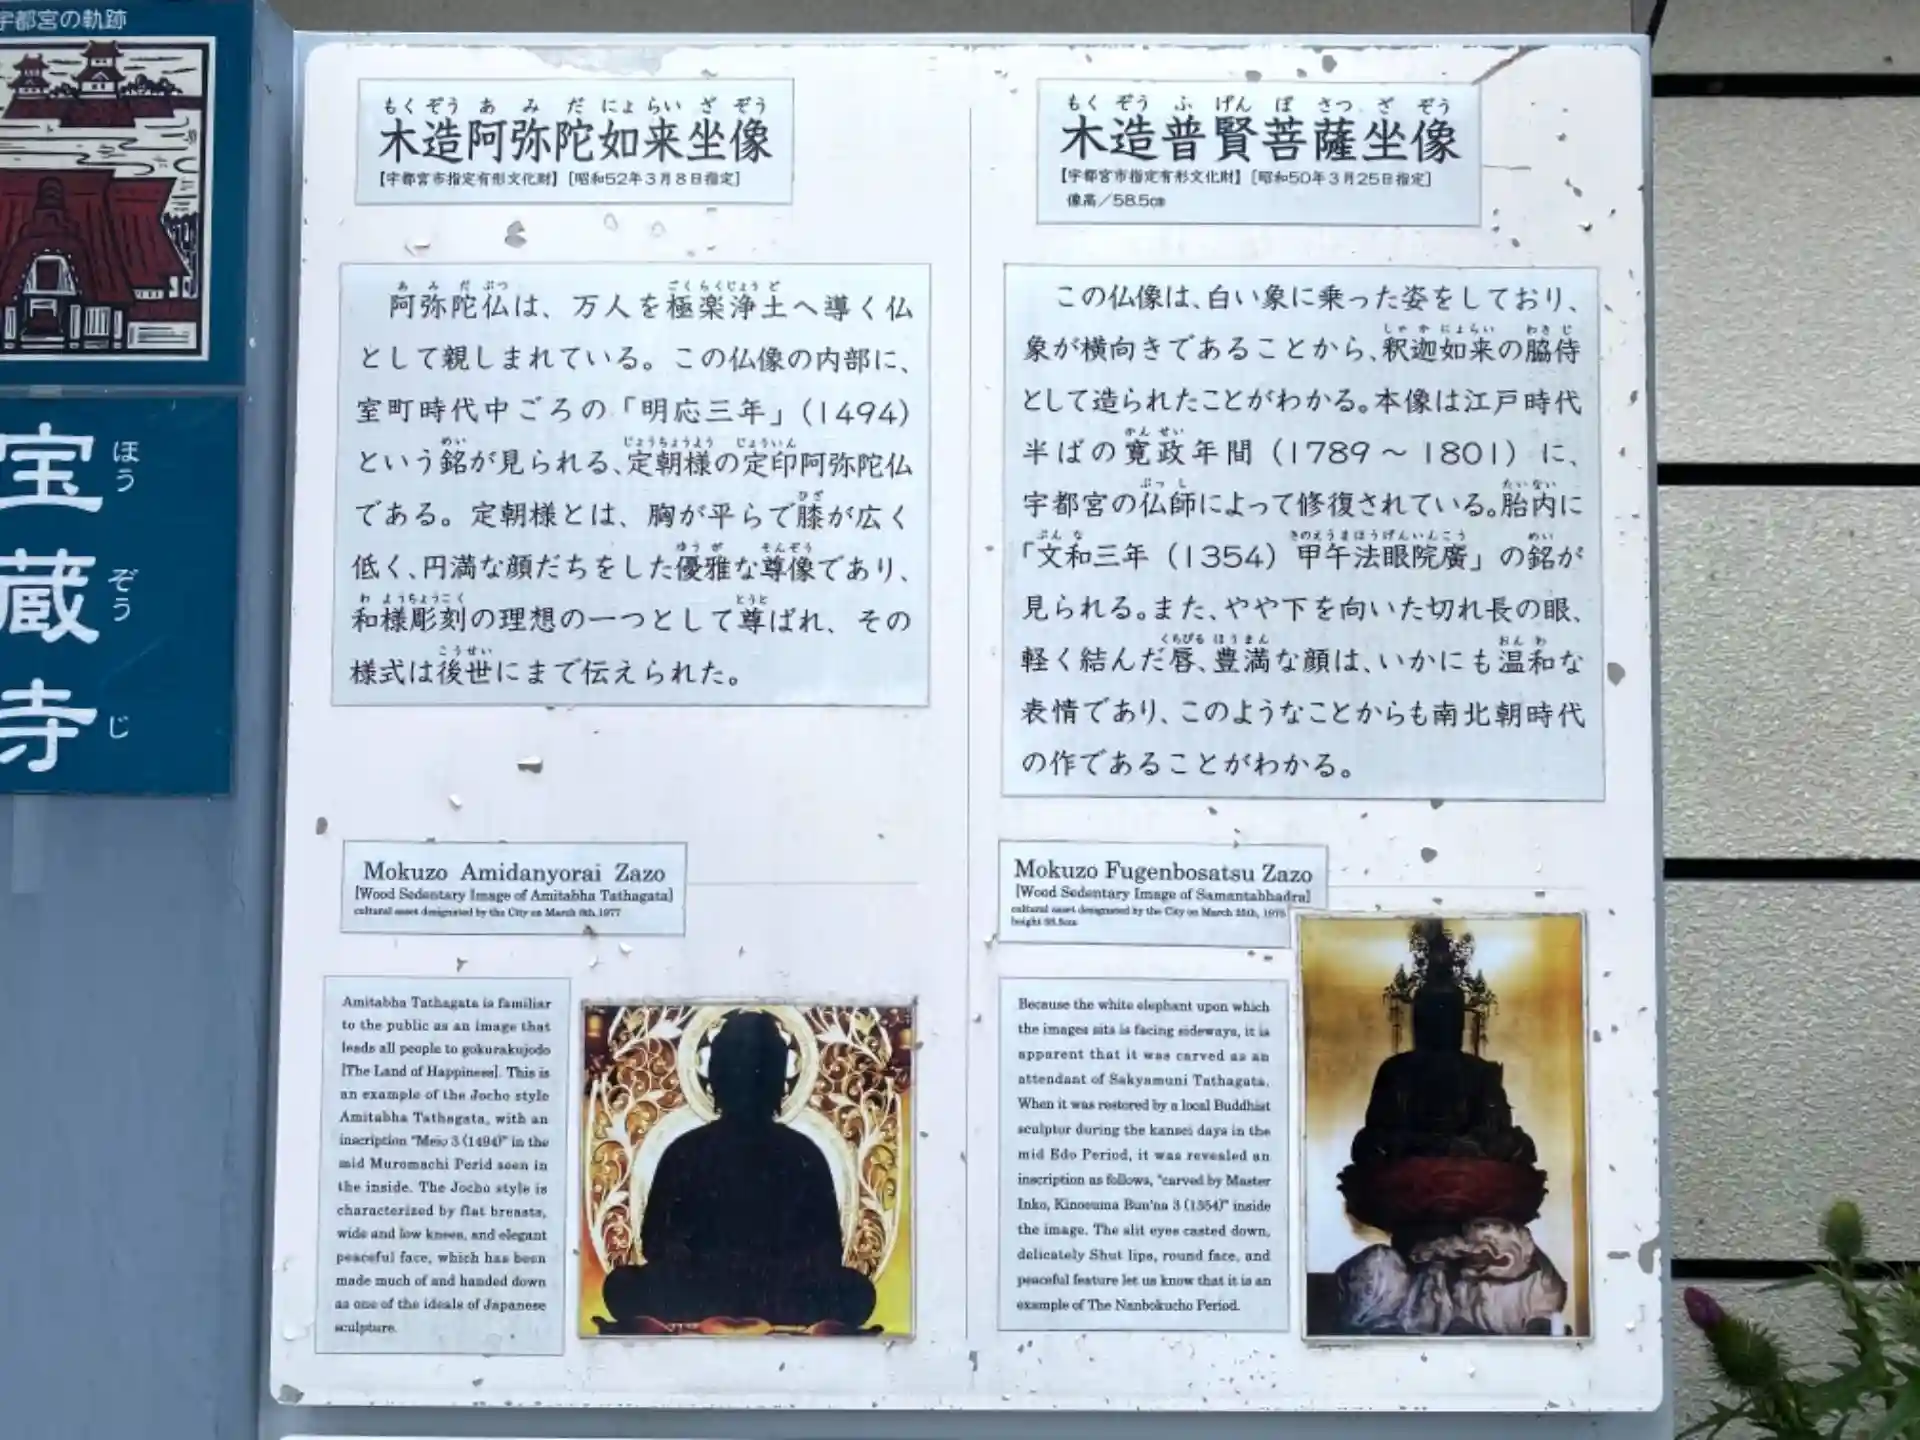 宇都宮の軌跡
宝蔵寺
ほうぞうじ
もくぞうあみだにょらいざぞう
木造阿弥陀如来坐像
【宇都宮市指定有形文化財】[昭和52年3月8日指定]
あみだぶつ ごくらくじょうど
阿弥陀仏は、万人を極楽浄土へ導く仏
として親しまれている。この仏像の内部に、
室町時代中ごろの「明応三年」(1494)
めい じょうちょうよう じょういん
という銘が見られる、定朝様の定印阿弥陀仏
ひざ
である。定朝様とは、胸が平らで膝が広く
ゆうが そんぞう
低く、円満な顔だちをした優雅な尊像であり、
わようちょうこく とうと
和様彫刻の理想の一つとして尊ばれ、その
こうせい
様式は後世にまで伝えられた。
Mokuzo Amidanyorai Zazo
[Wood Sedentary Image of Amitabha Tathagata]
cultural asset designated by the City on March 8th, 1977
Amitabha Tathagata is familiar
to the public as an image that
leads all people to gokurakujodo
[The Land of Happiness]. This is
an example of the Jocho style
Amitabha Tathagata, with an
inscription "Meio 3 (1494)" in the
mid Muromachi Perid seen in
the inside. The Jocho style is
characterized by flat breasts,
wide and low knees, and elegant
peaceful face, which has been
made much of and handed down
as one of the ideals of Japanese
sculpture.
もくぞうふげんぼさつざぞう
木造普賢菩薩坐像
【宇都宮市指定有形文化財】[昭和50年3月25日指定]
像高／58.5㎝
この仏像は、白い象に乗った姿をしており、
しゃかにょらい わきじ
象が横向きであることから、釈迦如来の脇侍
として造られたことがわかる。本像は江戸時代
かんせい
半ばの寛政年間(1789～1801)に、
ぶっし たいない
宇都宮の仏師によって修復されている。胎内に
ぶんな きのえうまほうげんいんこう めい
「文和三年(1354)甲午法眼院廣」の銘が
見られる。また、やや下を向いた切れ長の眼、
くちびる ほうまん おんわ
軽く結んだ唇、豊満な顔は、いかにも温和な
表情であり、このようなことからも南北朝時代
の作であることがわかる。
Mokuzo Fugenbosatsu Zazo
[Wood Sedentary Image of Samantabhadra]
cultural asset designated by the City on March 25th, 1975
height 58.5cm
Because the white elephant upon which
the images sits is facing sideways, it is
apparent that it was carved as an
attendant of Sakyamuni Tathagata.
When it was restored by a local Buddhist
sculptor during the kansei days in the
mid Edo Period, it was revealed an
inscription as follows, "carved by Master
Inko, Kinoeuma Bun'na 3 (1354)" inside
the image. The slit eyes casted down,
delicately Shut lips, round face, and
peaceful feature let us know that it is an
example of The Nanbokucho Period.